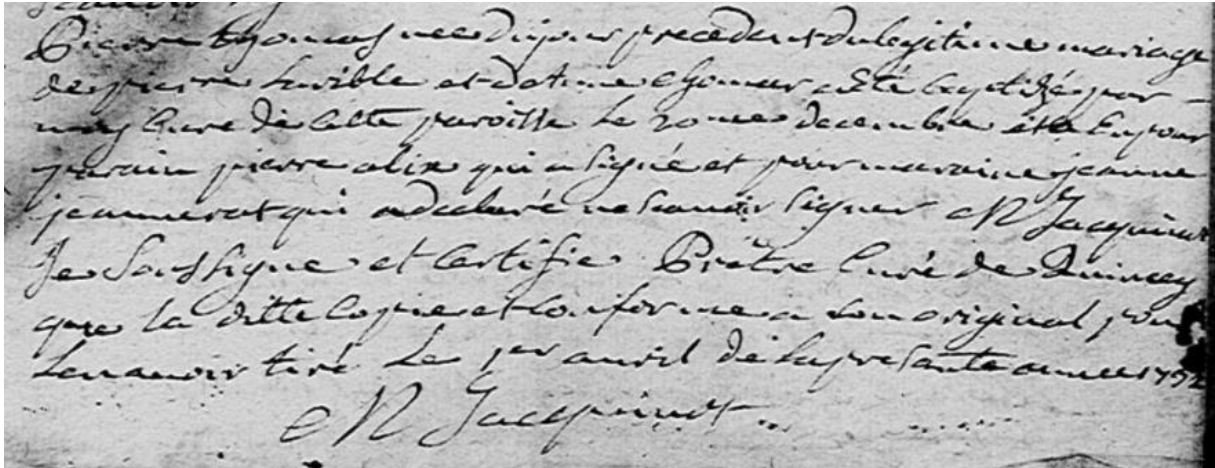 Pierre thomas nee du jour precedant du legitime mariage
de pierre huvible et detune thomas a été baptizé par
moy curé de cette paroisse le 20me decembre et a eu pour
parain pierre alix qui a signé et pour maraine jeanne
jeannerat qui a declaré ne scavoir signer N Jacquinot
Je Soussigne et Certifie Prêtre Curé de Quincey
que la ditte Copie est Conforme a son original pour
Len avoir tiré Le 1er avril de la presante annee 1752
N Jacquinot